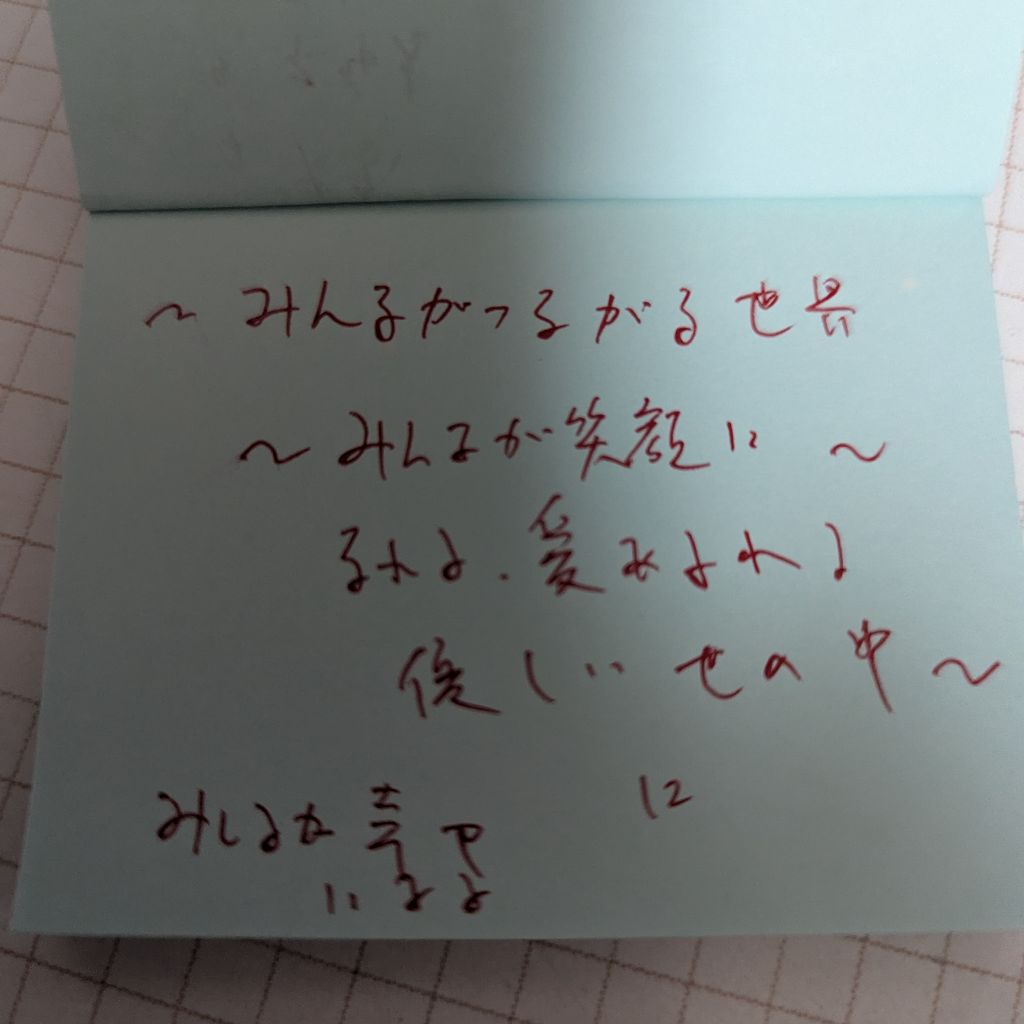 ～みんながつながる世界
～みんなが笑顔に～
なれる、愛あふれる
優しい世の中～
に
みんなが幸
になる